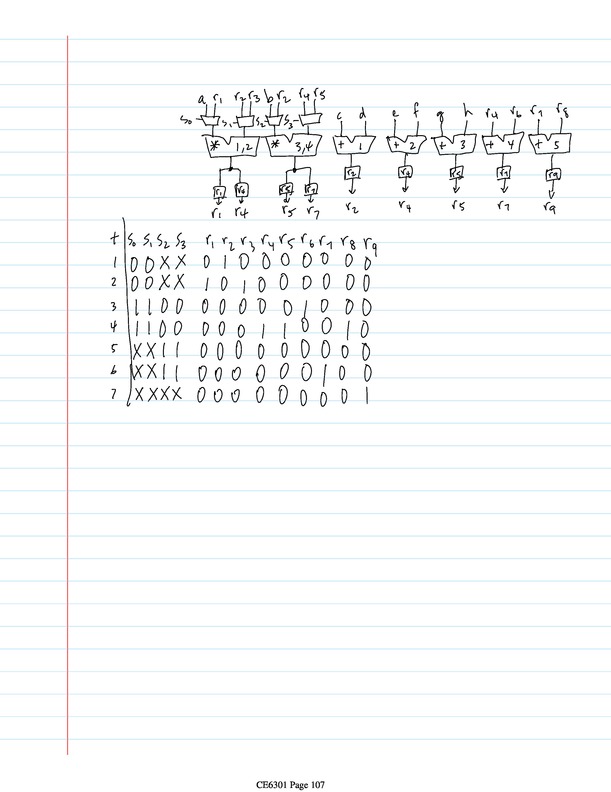 a r1 r2 r3 b r2 r4 r5
c d e f g h r4 r6 r7 r8
s0 s1 s2 s3
* 1,2 * 3,4 + 1 + 2 + 3 + 4 + 5
r1 r5 r2 r4 r5 r7 r9
r1 r4 r5 r7 r2 r4 r5 r7 r9
t s0 s1 s2 s3 r1 r2 r3 r4 r5 r6 r7 r8 r9
1 0 0 X X 0 1 0 0 0 0 0 0 0
2 0 0 X X 1 0 1 0 0 0 0 0 0
3 1 1 0 0 0 0 0 0 0 1 0 0 0
4 1 1 0 0 0 0 0 1 1 0 0 1 0
5 X X 1 1 0 0 0 0 0 0 0 0 0
6 X X 1 1 0 0 0 0 0 0 1 0 0
7 X X X X 0 0 0 0 0 0 0 0 1
CE6301 Page 107